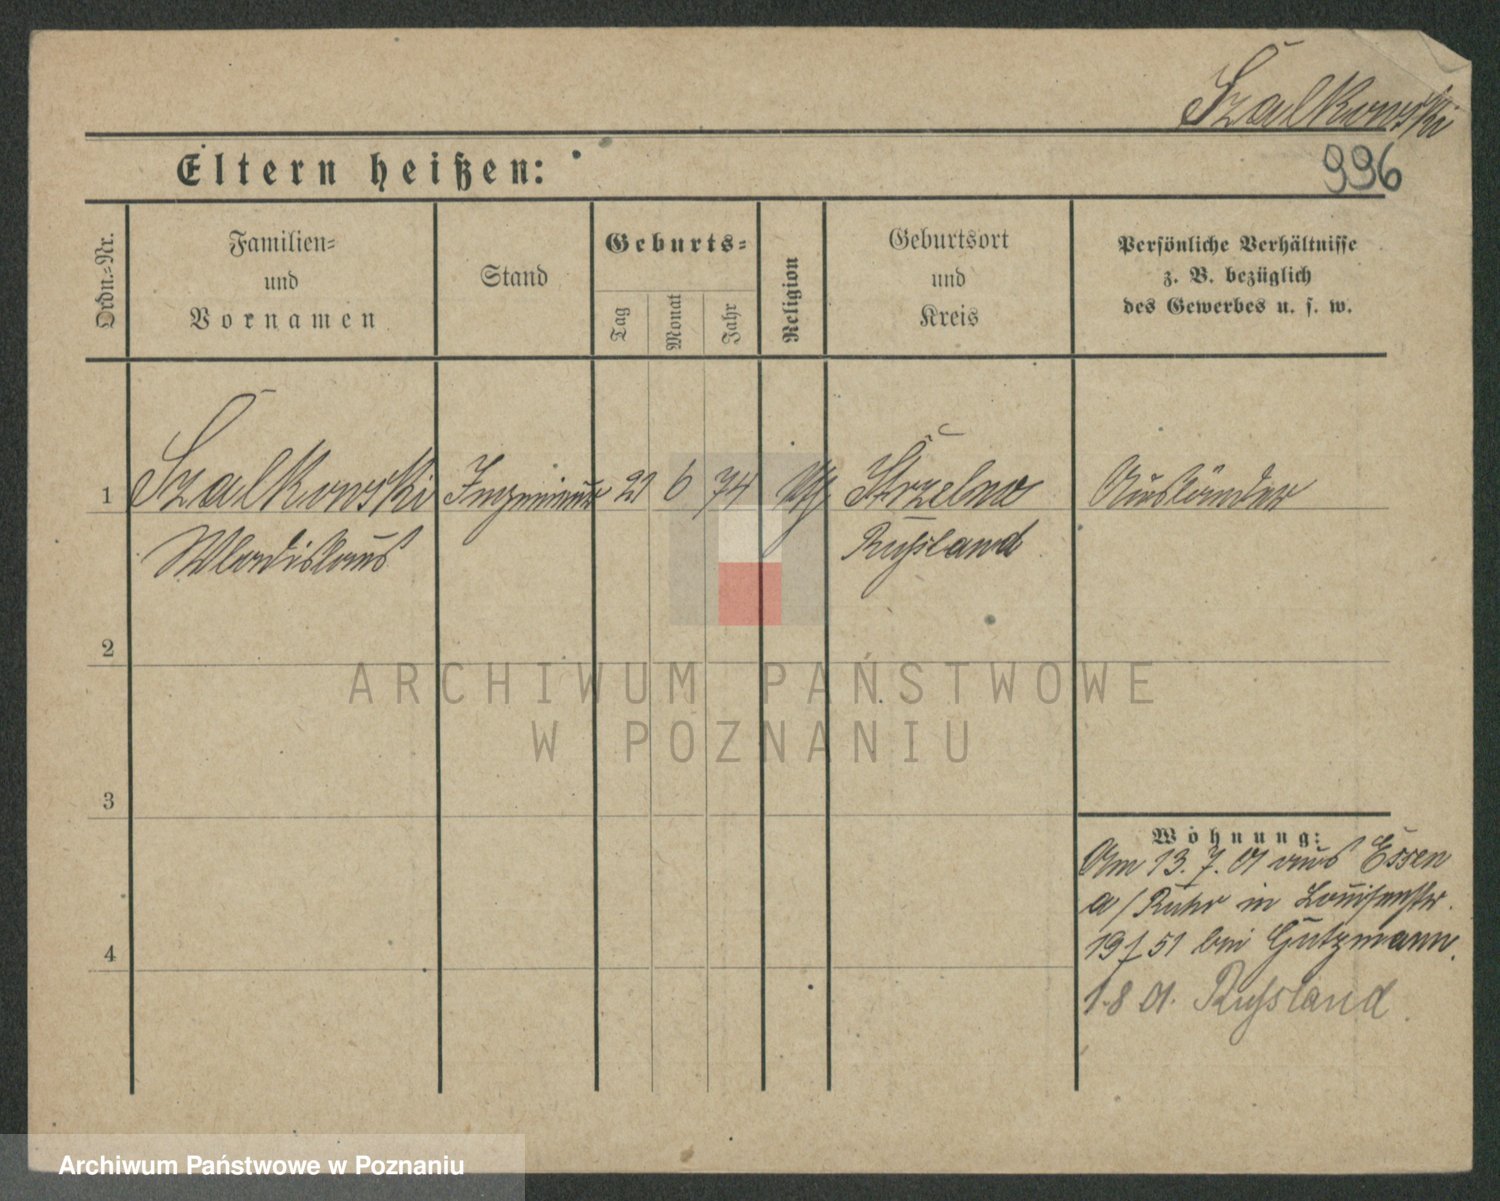 Szalkowski
996
Eltern heißen:
Ordn.-Nr.
Familien-
und
Vornamen
Stand
Geburts-
Tag
Monat
Jahr
Religion
Geburtsort
und
Kreis
Persönliche Verhältnisse
z. B. bezüglich
des Gewerbes u. s. w.
1
Szalkowski
Ingenieur
22
6
74
Strzelno
Ausländer
Wladislaus
Russland
2
3
4
ARCHIWUM PAŃSTWOWE
W POZNANIU
Wohnung:
Am 13.7.01 aus Essen
a/Ruhr in Louisenstr.
19 f 51 bei Gutzmann.
1.8 01. Russland.
Archiwum Państwowe w Poznaniu